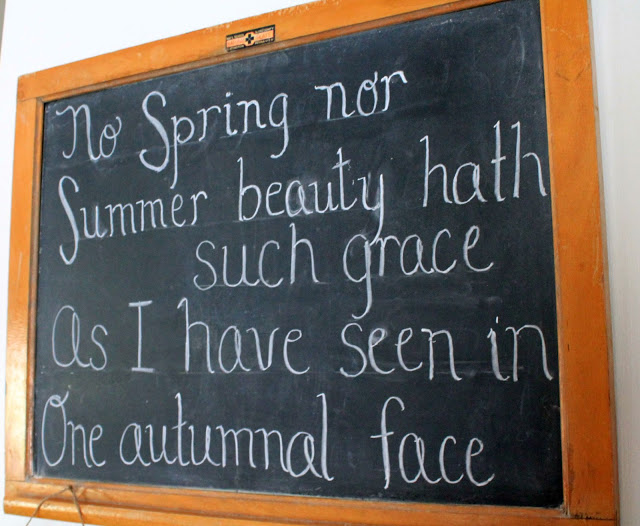 No Spring nor
Summer beauty hath
such grace
As I have seen in
One autumnal face